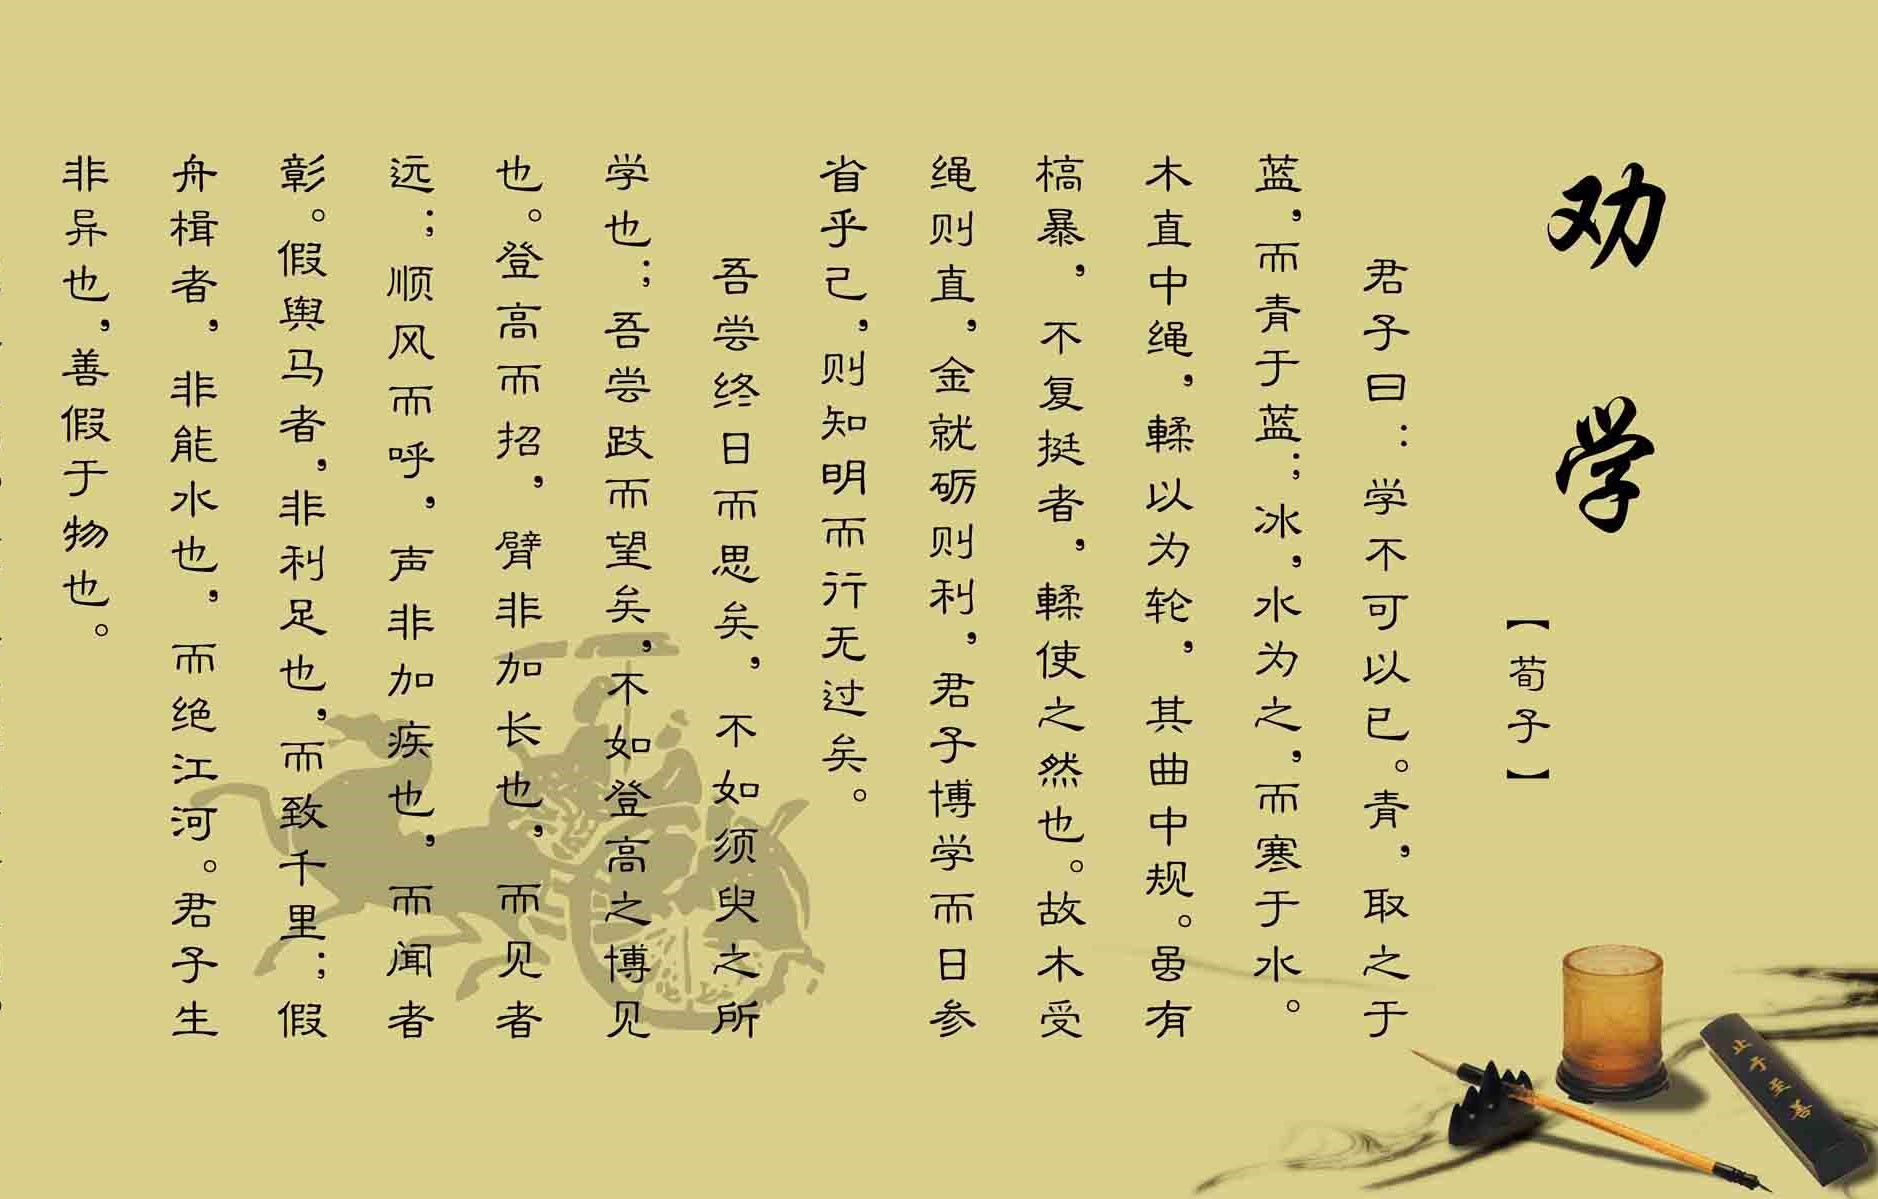 劝学
【荀子】
君子曰：学不可以已。青，取之于
蓝，而青于蓝；冰，水为之，而寒于水。
木直中绳，輮以为轮，其曲中规。虽有
槁暴，不复挺者，輮使之然也。故木受
绳则直，金就砺则利，君子博学而日参
省乎己，则知明而行无过矣。
吾尝终日而思矣，不如须臾之所
学也；吾尝跂而望矣，不如登高之博见
也。登高而招，臂非加长也，而见者
远；顺风而呼，声非加疾也，而闻者
彰。假舆马者，非利足也，而致千里；假
舟楫者，非能水也，而绝江河。君子生
非异也，善假于物也。
止于至善